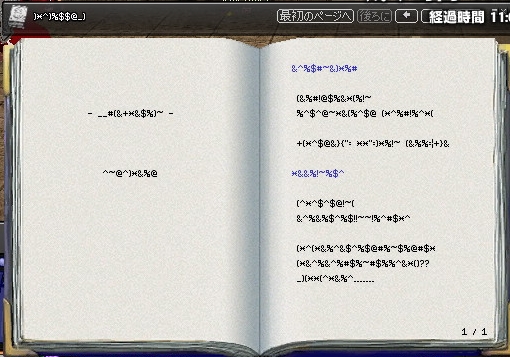 )×^)%$$@_)
最初のページへ 後ろに ← 経過時間 11:
- __#(&+×&$%)~ -
^~@^)×&%@
&^%$#~&)×%#
(&%#!@$%&×(%!~
%^$^@~×&(%^$@ (×^%#!%^×(
+(×^$@&}{": ××":)×%!~ (&%%:|+}&
×&&%!~%$^
(^×^$^$@!~(
&^%&%$^%$!!~~!%^#$×^
(×^(×&%^&$^%$@#%~$%@#$×
(×&^%&^%#$%~#$%%^&×()??
_)(××(^×&%^.......
1 / 1